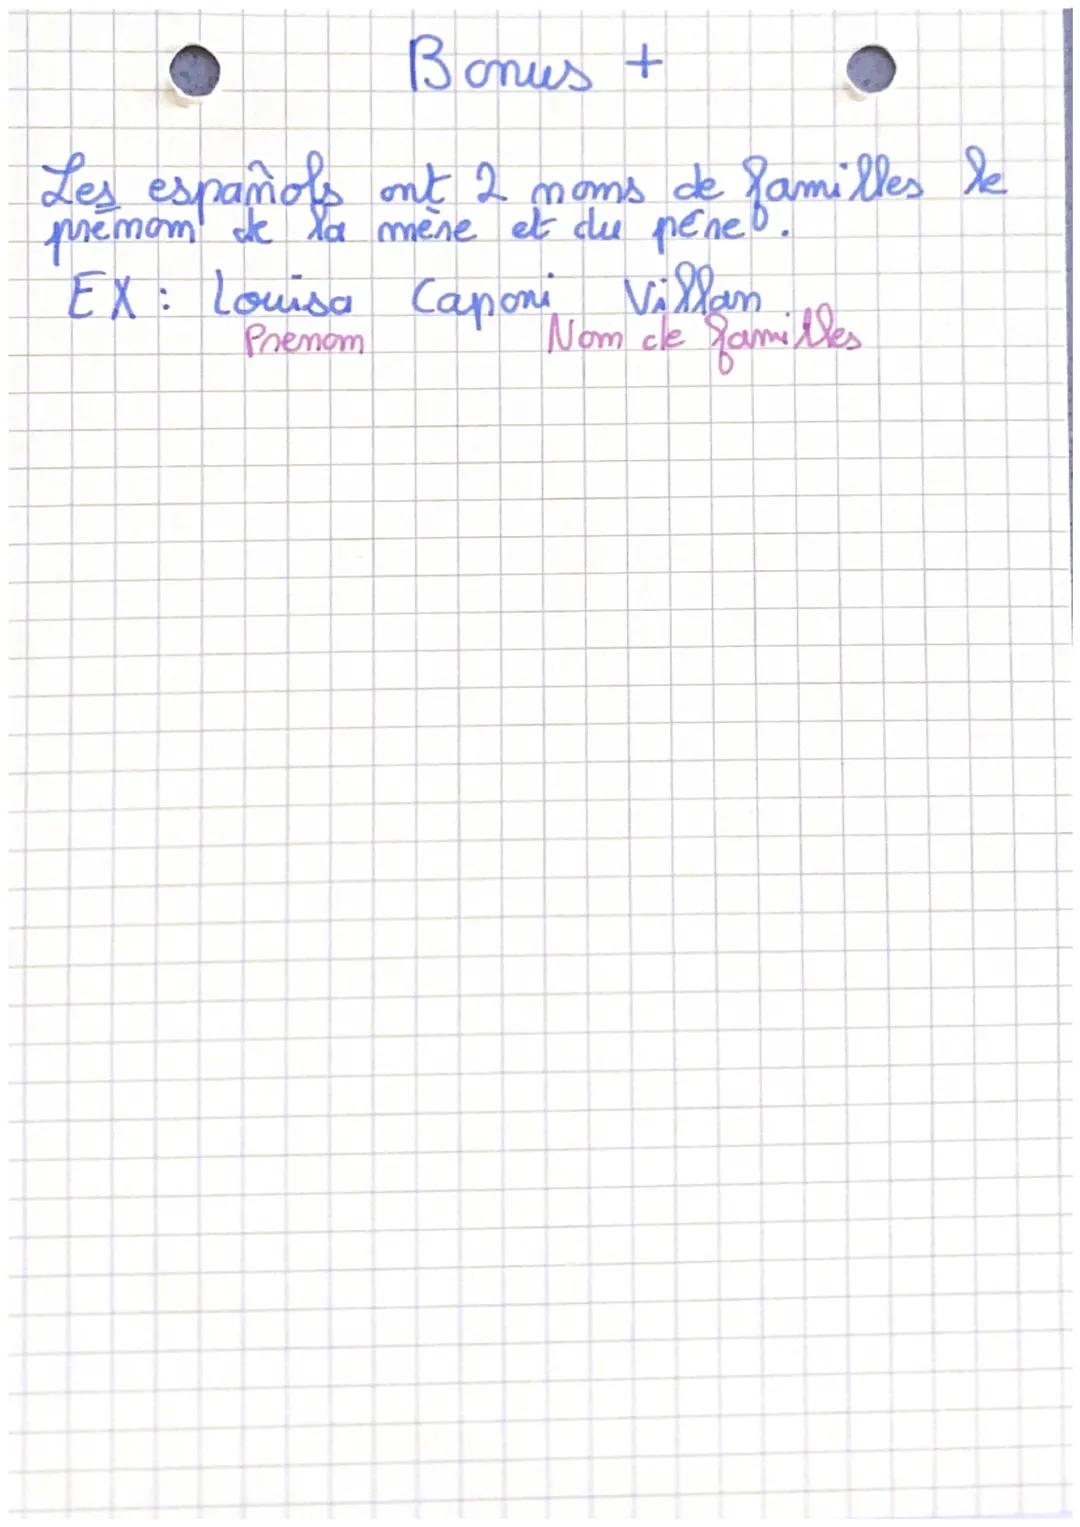 Bonus +
Les españols ont 2 noms de familles le
prénom de la mère et du père.
EX : Louisa Caponi Villan
Prenom Nom de familles